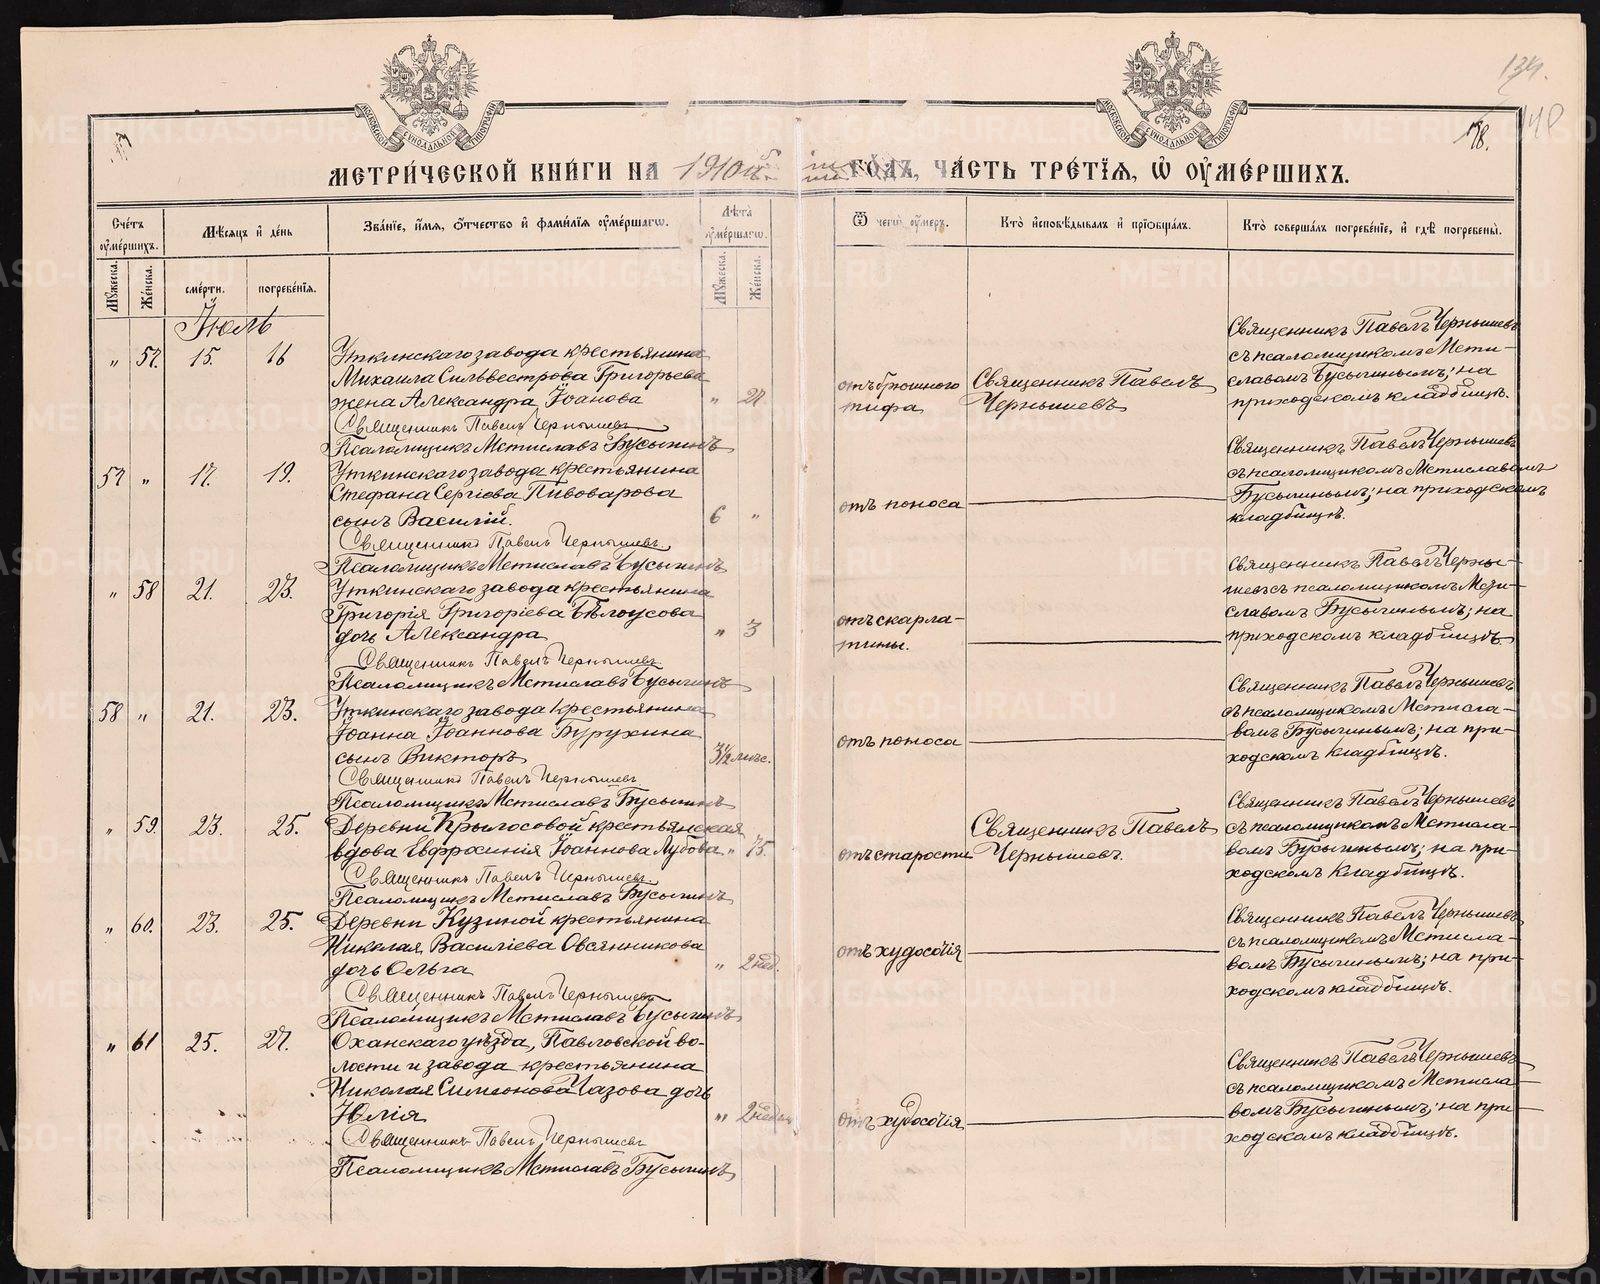 134.
78.
140
МОСКОВСКОЙ СѴНОДАЛЬНОЙ ТИПОГРАФІИ
МОСКОВСКОЙ СѴНОДАЛЬНОЙ ТИПОГРАФІИ
МЕТРИ́ЧЕСКОЙ КНИ́ГИ НА 1910й ГО́ДЪ, ЧА́СТЬ ТРЕ́ТЇѦ, Ѡ ОУМЕ́РШИХЪ.
Сче́тъ оумершихъ.
Мѣсѧцъ и де́нь
Зва́нїе, и́мѧ, ѻ́тчество и фами́лїѧ оуме́ршагѡ.
Лѣта̀ оуме́ршагѡ.
Ѿ чегѡ̀ оу́меръ.
Кто̀ и҆сповѣ́дывалъ и прїѡбща́лъ.
Кто̀ соверша́лъ погребе́нїе, и гдѣ̀ погребены̀.
Мꙋ́жеска.
Же́нска.
сме́рти.
погребе́нїѧ.
Мꙋ́жеска.
Же́нска.
Іюль
" 57. 15. 16
Уткинскаго завода крестьянина
Михаила Сильвестрова Григорьева
жена Александра Іоанова " 27.
Священникъ Павелъ Чернышевъ
Псаломщикъ Мстиславъ Бусыгинъ
отъ брюшного
тифа
Священникъ Павелъ
Чернышевъ
Священникъ Павелъ Чернышевъ
съ псаломщикомъ Мсти-
славомъ Бусыгинымъ; на
приходскомъ кладбищѣ.
57 " 17. 19.
Уткинскаго завода крестьянина
Стефана Сергіева Пивоварова
сынъ Василій. 6 "
Священникъ Павелъ Чернышевъ.
Псаломщикъ Мстиславъ Бусыгинъ
отъ поноса
Священникъ Павелъ Чернышевъ
съ псаломщикомъ Мстиславомъ
Бусыгинымъ; на приходскомъ
кладбищѣ.
" 58 21. 23.
Уткинскаго завода крестьянина
Григорія Григоріева Бѣлоусова
дочь Александра " 3
Священникъ Павелъ Чернышевъ.
Псаломщикъ Мстиславъ Бусыгинъ
отъ скарла-
тины.
Священникъ Павелъ Черны-
шевъ съ псаломщикомъ Мсти-
славомъ Бусыгинымъ; на
приходскомъ кладбищѣ.
58 " 21. 23.
Уткинскаго завода крестьянина
Іоанна Іоаннова Бурухина
сынъ Викторъ 3½ мѣс.
Священникъ Павелъ Чернышевъ
Псаломщикъ Мстиславъ Бусыгинъ
отъ поноса
Священникъ Павелъ Чернышевъ
съ псаломщикомъ Мстисла-
вомъ Бусыгинымъ; на при-
ходскомъ кладбищѣ.
" 59. 23. 25.
Деревни Крылосовой крестьянская
вдова Евфросинія Іоаннова Лубова " 75.
Священникъ Павелъ Чернышевъ.
Псаломщикъ Мстиславъ Бусыгинъ
отъ старости
Священникъ Павелъ
Чернышевъ.
Священникъ Павелъ Чернышевъ
съ псаломщикомъ Мстисла-
вомъ Бусыгинымъ; на при-
ходскомъ кладбищѣ.
" 60. 23. 25.
Деревни Кузиной крестьянина
Николая Василіева Овсянникова
дочь Ольга " 2 нед.
Священникъ Павелъ Чернышевъ
Псаломщикъ Мстиславъ Бусыгинъ
отъ худосочія
Священникъ Павелъ Чернышевъ
съ псаломщикомъ Мстисла-
вомъ Бусыгинымъ; на при-
ходскомъ кладбищѣ.
" 61 25. 27.
Оханскаго уѣзда, Павловской во-
лости и завода крестьянина
Николая Симеонова Чазова дочь
Юлія " 2 недѣл.
Священникъ Павелъ Чернышевъ
Псаломщикъ Мстиславъ Бусыгинъ
отъ худосочія
Священникъ Павелъ Чернышевъ
съ псаломщикомъ Мстисла-
вомъ Бусыгинымъ; на при-
ходскомъ кладбищѣ.
METRIKI.GASO-URAL.RU